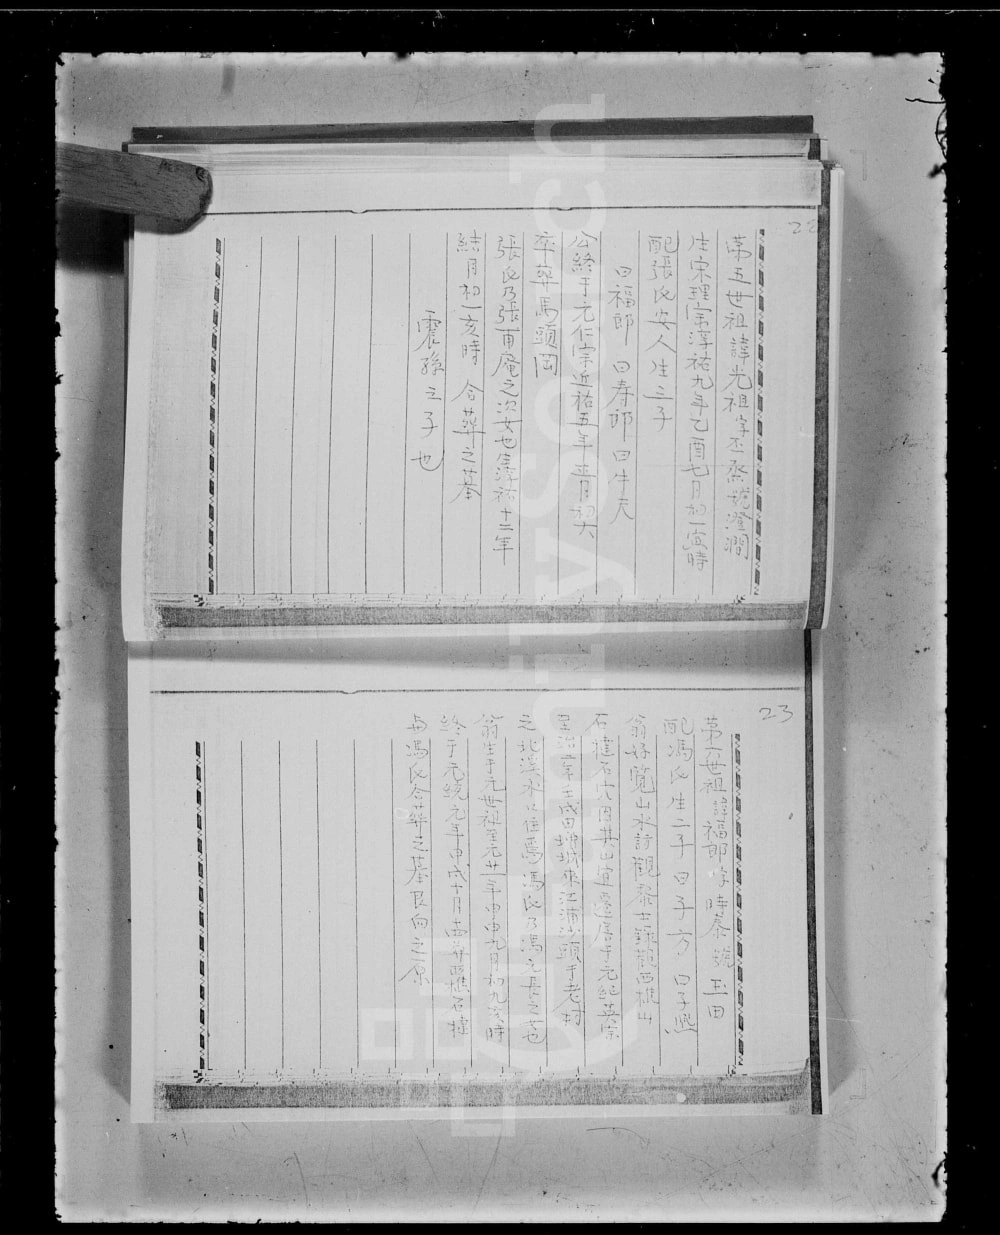 22
第五世祖諱光祖字丕烝號澄澗
生宋理宗淳祐九年乙酉七月初一寅時
配張氏安人生三子
曰福郎 曰寿郎 曰牛夫
公終于元仁宗近祐五年正月初六
卒葬馬頭岡
張氏乃張甫庵之次女也淳祐十二年
結月初一亥時 合葬之墓
震孫之子也
23
第六世祖諱福郎字時泰號玉田
配馮氏生二子曰子方 曰子熙
翁好覽山水詩觀泰士錄覩西樵山
石樁石穴因其山宜遷居于元紀英宗
至治二年壬戌由增城來江浦沙頭于老村
之北深水以住焉馮氏乃馮元長之
翁生于元世祖至元廿一年甲申九月初九亥時
終于元統元年甲戌十月 樵石樁
與馮氏合葬之墓艮向之原
FamilySearch